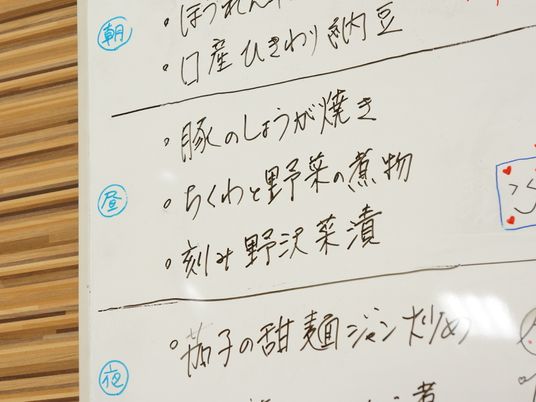 朝
・ほうれん
・口産ひきわり納豆
・豚のしょうが焼き
昼
・ちくわと野菜の煮物
・刻み野沢菜漬
・茄子の甜麺ジャン炒め
夜
煮